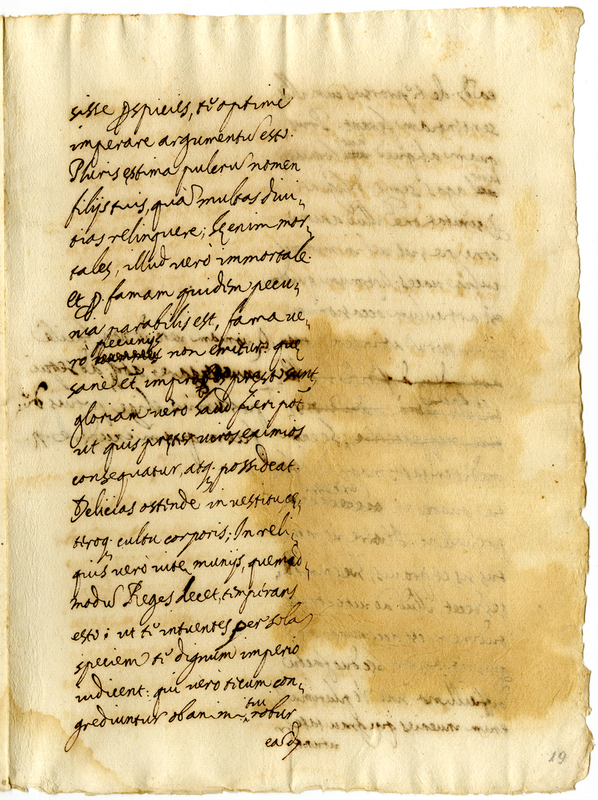 sisse perspicies, tū optimè
imperare argumentū esto.
Pluris ęstima pulcrū nomen
filijs tuis, quā multas divi„
tias relinquere; hę enim mor„
tales, illud verò immortale.
Et p. famam quidem pecu„
nia parabilis est, fama ve„
rò pecunijs non emitur: quę
sanè et improbis presto sunt,
gloriam verò haud fieri pōt
ut quis pręter viros eximios
consequatur, atq. possideat.
Delicias ostende in vestitu cę„
teroq. cultu corporis; In reli„
quis verò vitę munijs, quemad„
modū Reges decet, temperans
esto: ut tē intuentes per solā
speciem tē dignum imperio
iudicent: qui vero tecum con„
grediuntur ob animi tui robur
eadem
19